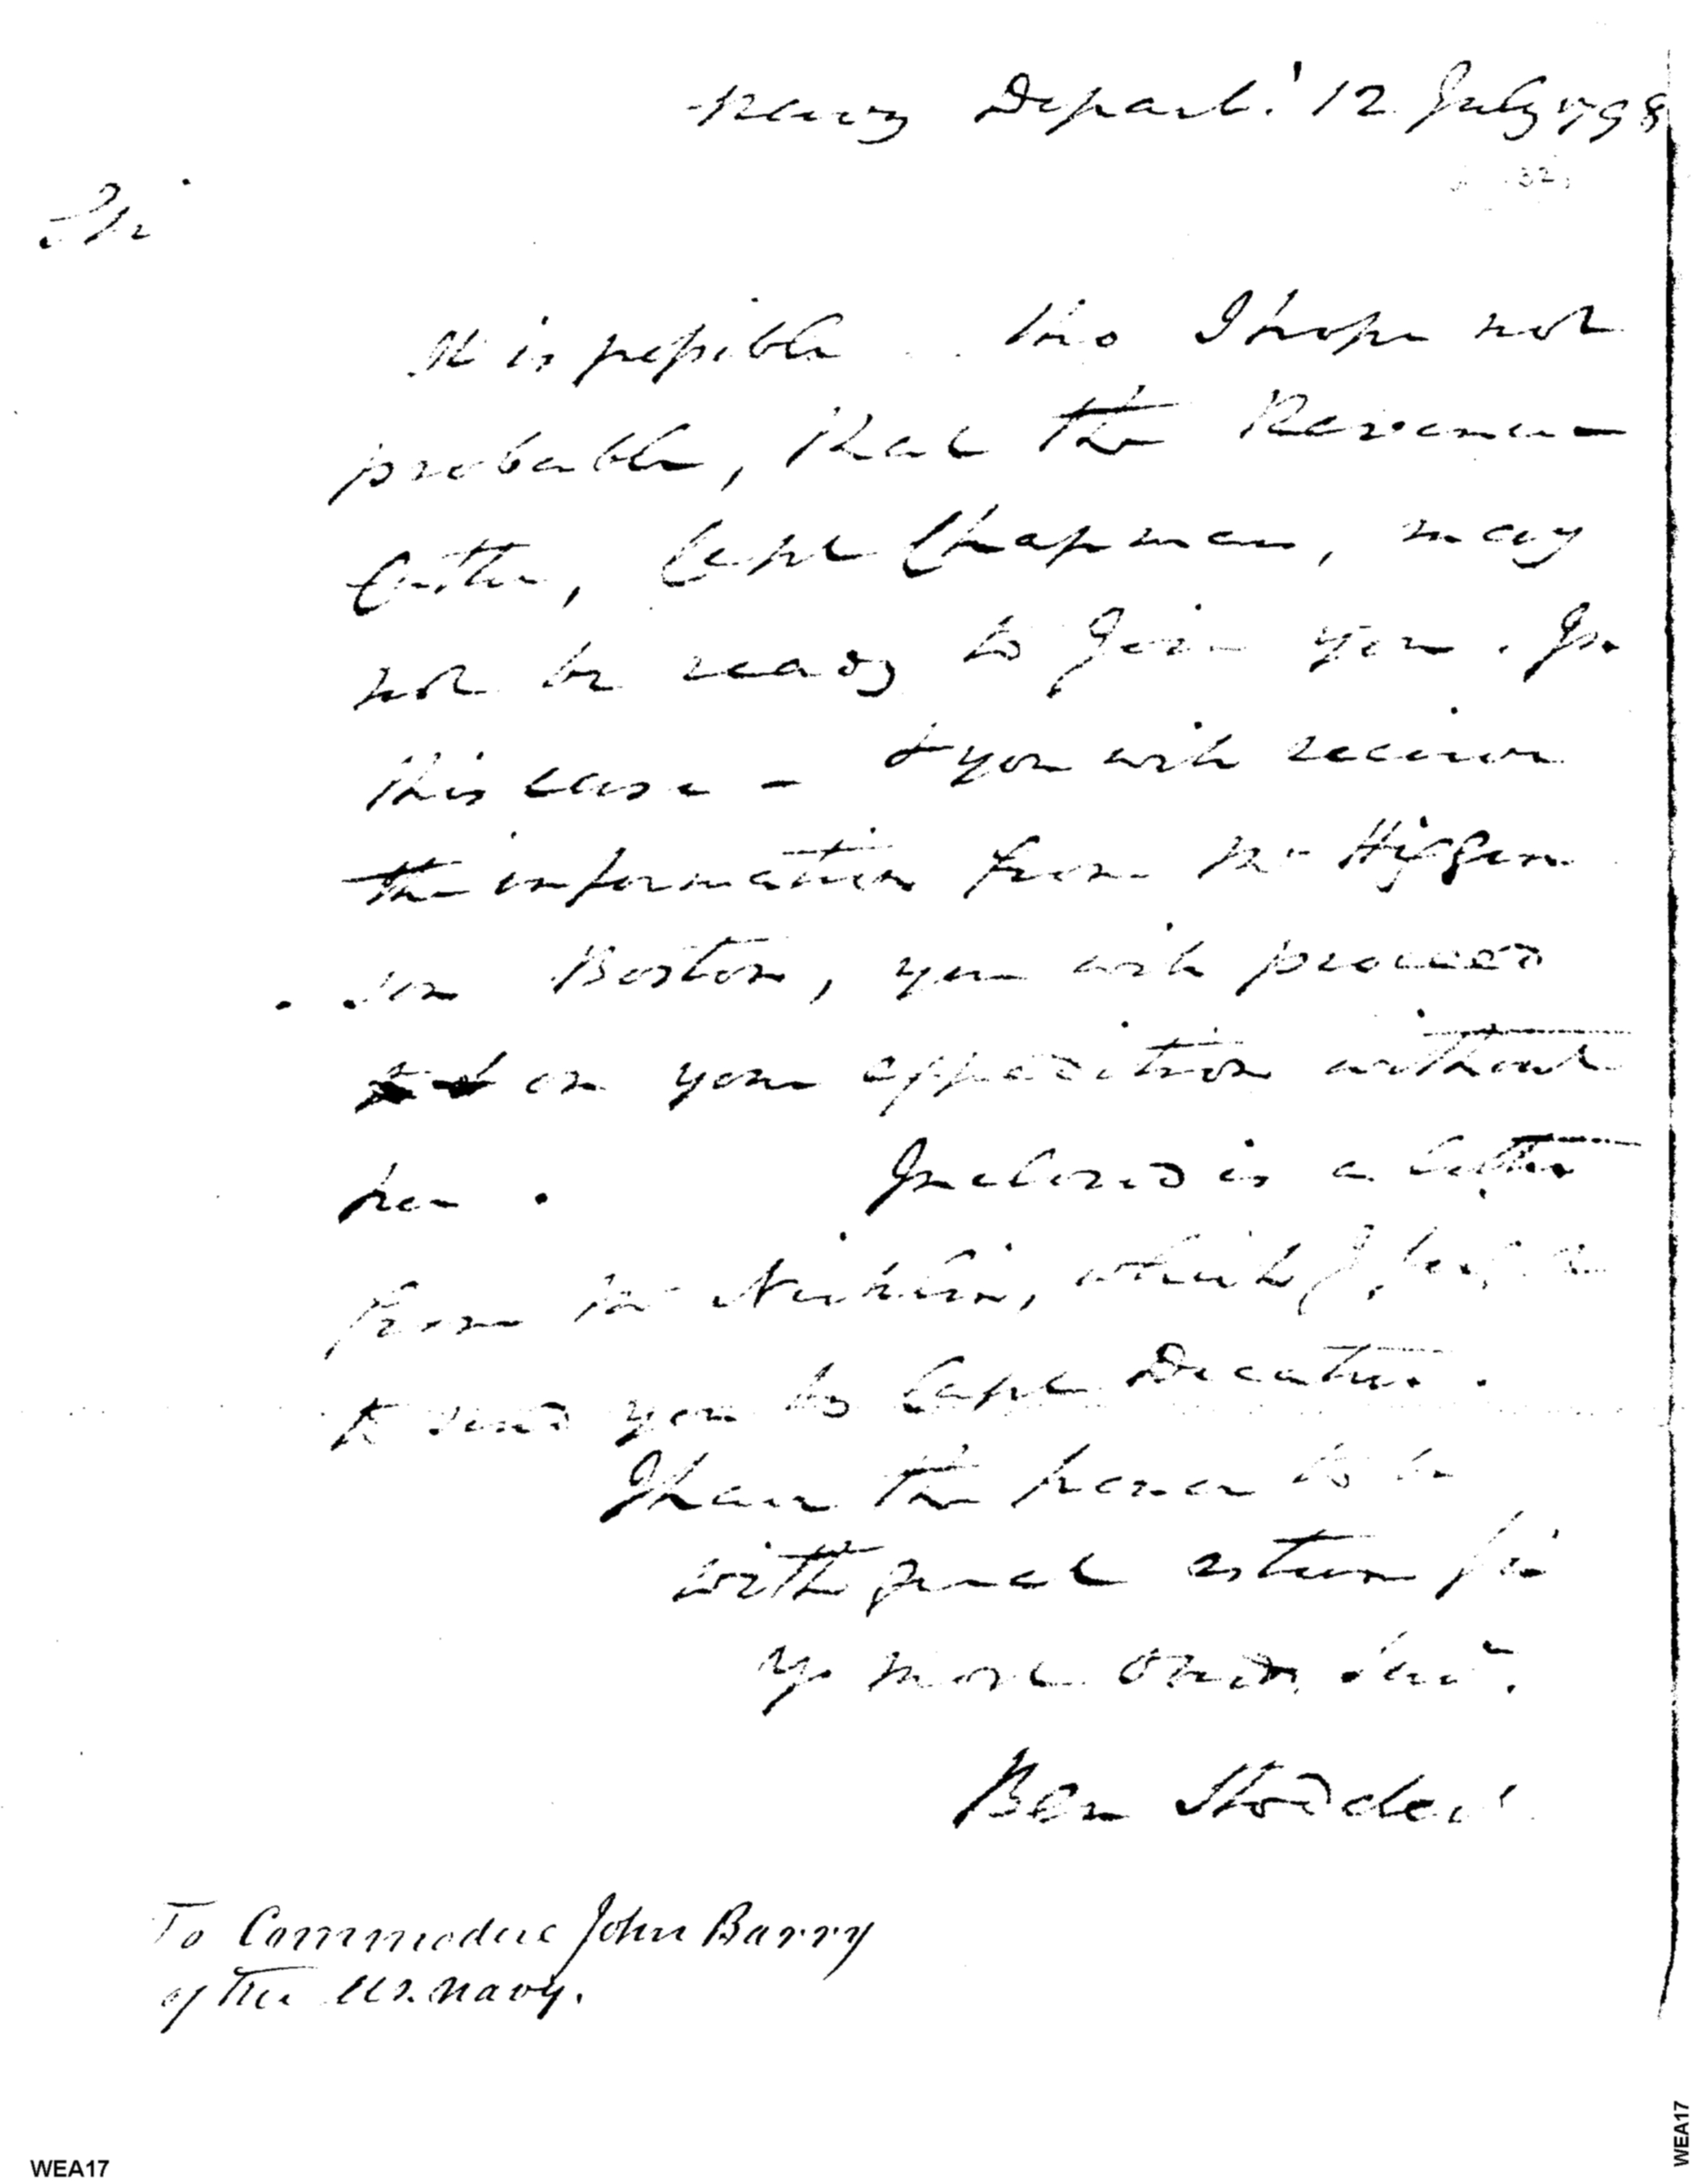 Navy Depart.t 12 July 1798
Sir
It is possible tho I hope not
probable, that the Revenue
Cutter, Capt Chapman, may
not be ready to Join you. In
this case - & you will receive
the information from Mr Higgin
son Boston, you will proceed
on your expedition without
her. Inclosed is a letter
from Mr Nicklin, which I
to send you by Capt Decatur.
I have the honor to be
with great esteem Sir
yr most Obed. Servt.
Ben Stoddert
To Commodore John Barry
of the US. Navy.
WEA17
WEA17